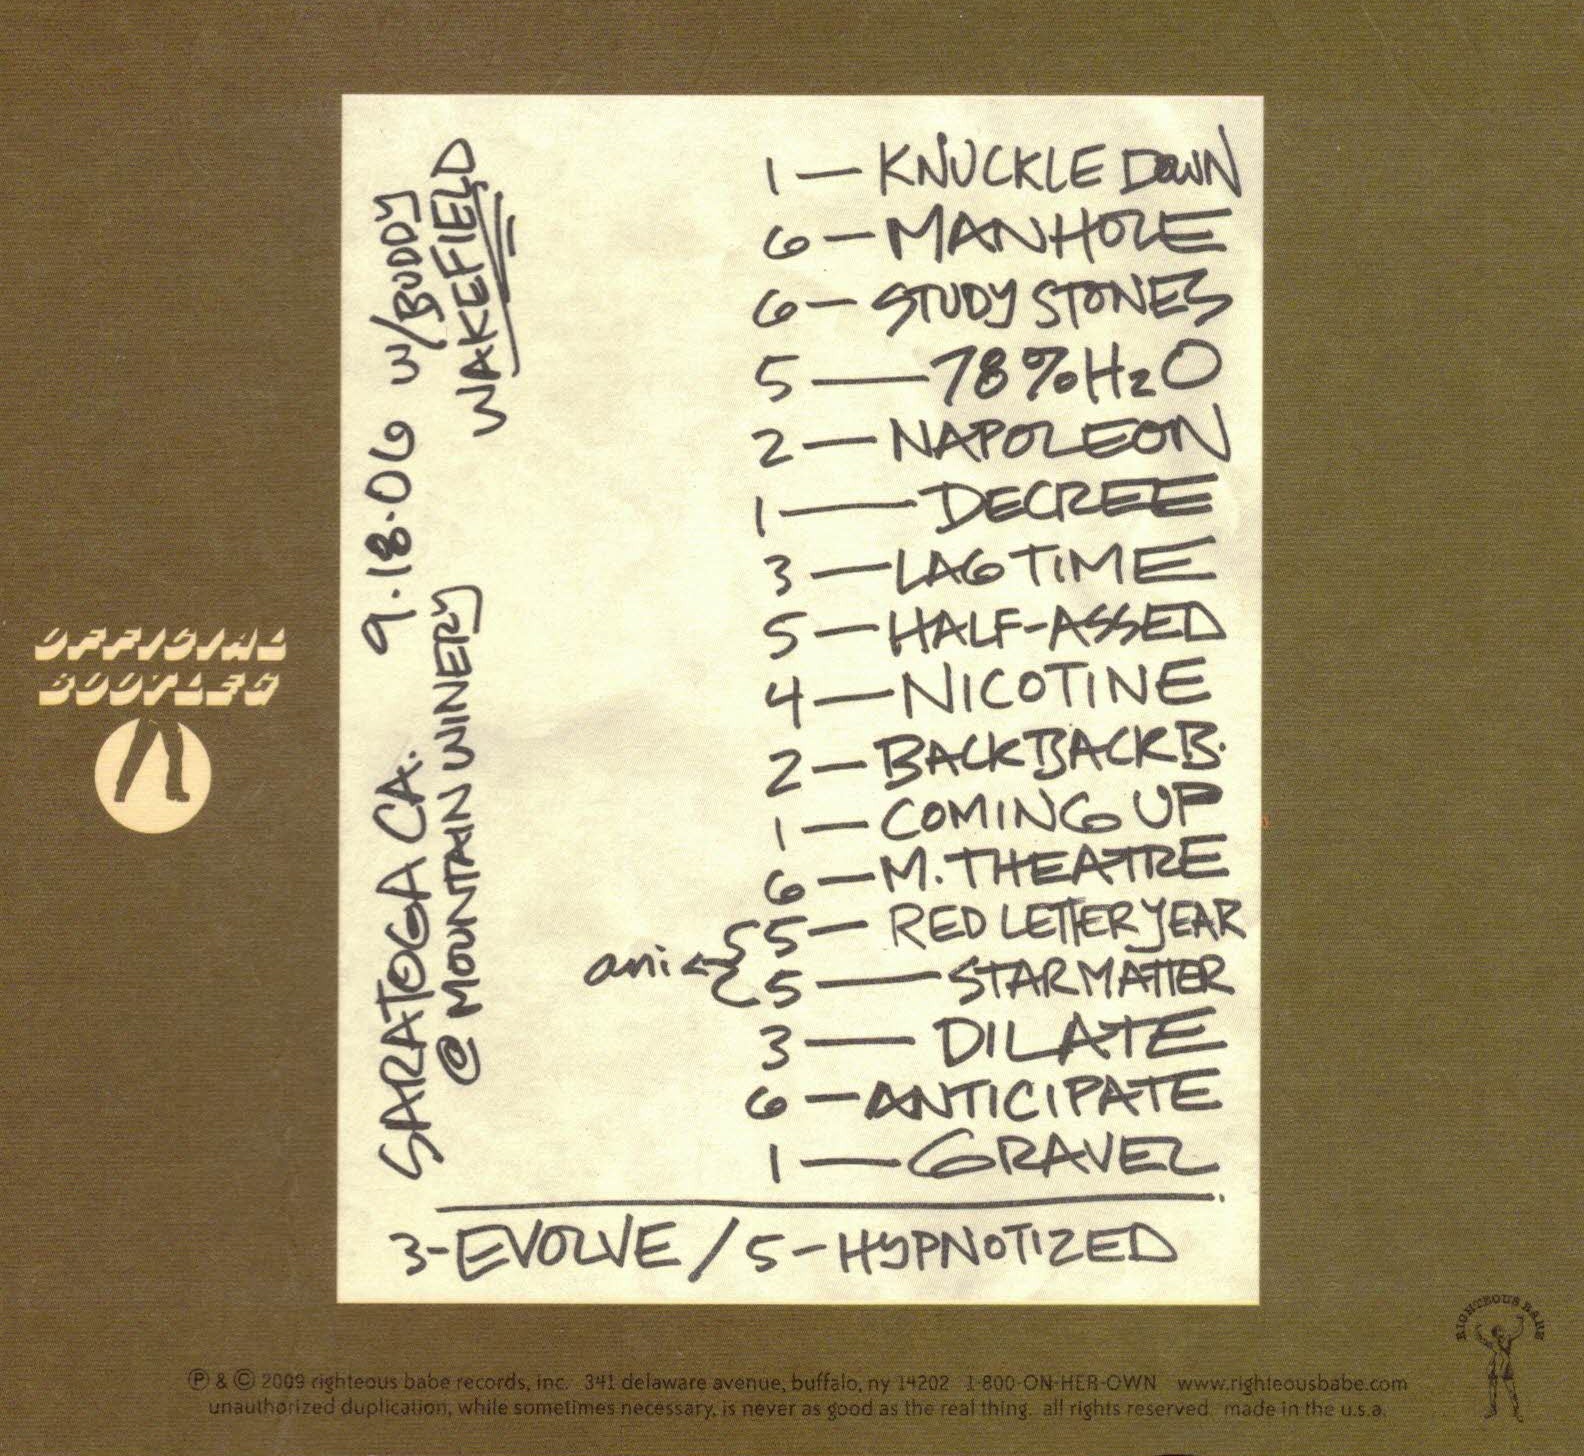 OFFICIAL
BOOTLEG
SARATOGA CA. 9.18.06 W/BUDDY
WAKEFIELD
@ MOUNTAIN WINERY
1 — KNUCKLE DOWN
6 — MANHOLE
6 — STUDY STONES
5 — 78% H2O
2 — NAPOLEON
1 — DECREE
3 — LAG TIME
5 — HALF-ASSED
4 — NICOTINE
2 — BACK BACK B.
1 — COMING UP
6 — M. THEATRE
5 — RED LETTER YEAR
ani ← { 5 — STAR MATTER
3 — DILATE
6 — ANTICIPATE
1 — GRAVEL
3 - EVOLVE / 5 - HYPNOTIZED
RIGHTEOUS BABE
℗ & © 2009 righteous babe records, inc. 341 delaware avenue, buffalo, ny 14202 1-800-ON-HER-OWN www.righteousbabe.com
unauthorized duplication, while sometimes necessary, is never as good as the real thing. all rights reserved. made in the u.s.a.